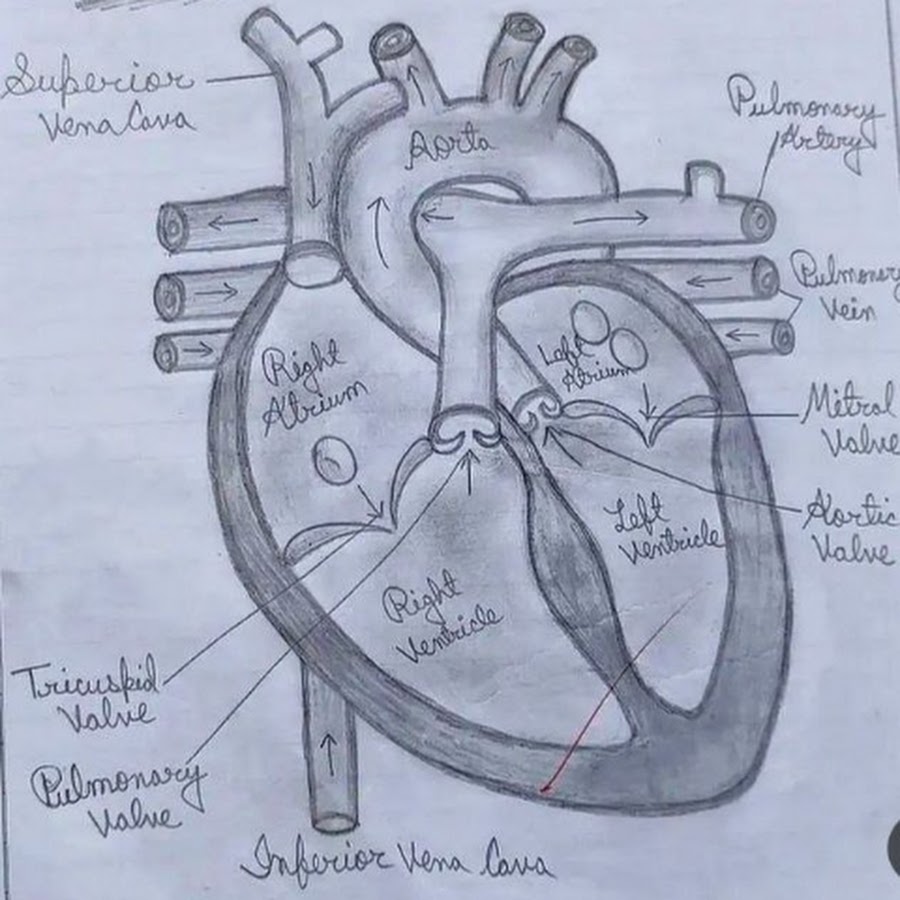 Superior
Vena Cava
Aorta
Pulmonary
Artery
Pulmonary
Vein
Right
Atrium
Left
Atrium
Mitral
Valve
Aortic
Valve
Left
Ventricle
Right
Ventricle
Tricuspid
Valve
Pulmonary
Valve
Inferior Vena Cava